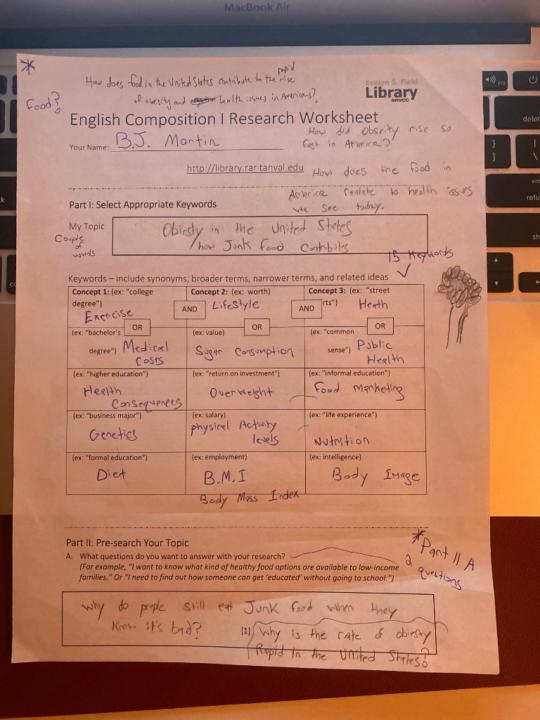 MacBook Air
*
How does food in the United States contribute to the rapid rise
of obesity and health issues in Americans?
Food?
Evelyn S. Field
Library
RVCC
English Composition I Research Worksheet
Your Name: B.J. Martin
How did Obseity rise so
fast in America?
http://library.raritanval.edu
How does the food in
America Corelate to health issues
we see today.
Part I: Select Appropriate Keywords
My Topic
Couple of words
Obiesty in the United States
how Junk Food Contributes
15 Keywords
Keywords – include synonyms, broader terms, narrower terms, and related ideas
Concept 1: (ex: "college degree")
Exercise
AND
Concept 2: (ex: worth)
Lifestyle
AND
Concept 3: (ex: "street
rts")
Heath
OR
OR
OR
(ex: "bachelor's
degree") Medical
Costs
(ex: value)
Sugar Consumption
(ex: "common
sense") Public
Health
(ex: "higher education")
Health
Consequences
(ex: "return on investment")
Overweight
(ex: "informal education")
Food Marketing
(ex: "business major")
Genetics
(ex: salary)
physical Activity
levels
(ex: "life experience")
Nutrition
(ex: "formal education")
Diet
(ex: employment)
B.M.I
Body Mass Index
(ex: intelligence)
Body Image
Part II: Pre-search Your Topic
*Part II A
2 questions
A. What questions do you want to answer with your research?
(For example, "I want to know what kind of healthy food options are available to low-income
families." Or "I need to find out how someone can get 'educated' without going to school.")
Why do people still eat Junk food when they
Know it's bad?
[2] Why is the rate of obiesty
Rapid in the United States?
delete